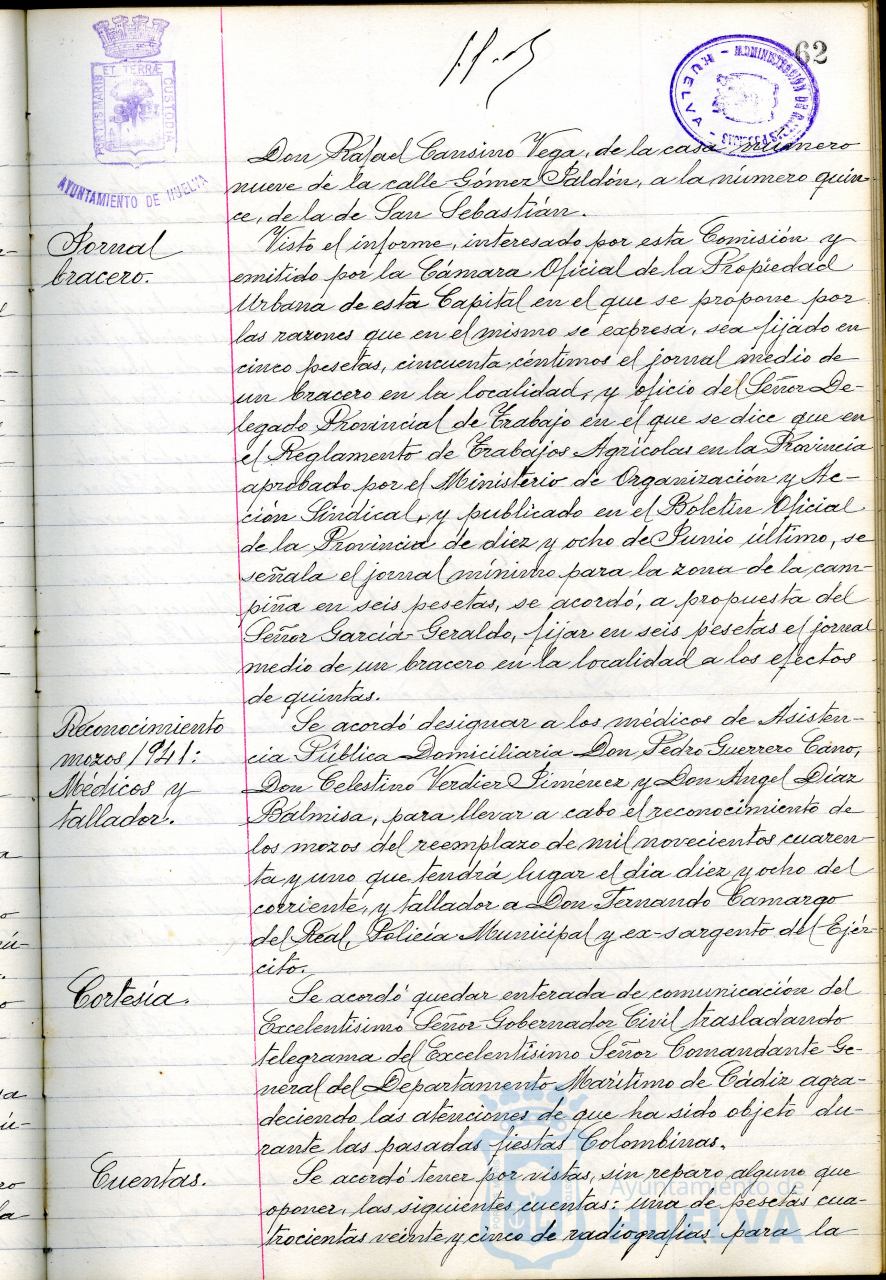 62
PORTUS MARIS ET TERRAE CUSTODIA
AYUNTAMIENTO DE HUELVA
HUELVA
Don Rafael Cansino Vega, de la casa número
nueve de la calle Gómez Jaldón, a la número quin-
ce, de la de San Sebastián.
Jornal
bracero.
Visto el informe, interesado por esta Comisión y
emitido por la Cámara Oficial de la Propiedad
Urbana de esta Capital en el que se propone por
las razones que en el mismo se expresa, sea fijado en
cinco pesetas, cincuenta céntimos el jornal medio de
un bracero en la localidad, y oficio del Señor De-
legado Provincial de Trabajo en el que se dice que en
el Reglamento de Trabajos Agrícolas en la Provincia
aprobado por el Ministerio de Organización y Ac-
ción Sindical, y publicado en el Boletin Oficial
de la Provincia de diez y ocho de Junio último, se
señala el jornal mínimo para la zona de la cam-
piña en seis pesetas, se acordó, a propuesta del
Señor García-Geraldo, fijar en seis pesetas el jornal
medio de un bracero en la localidad a los efectos
de quintas.
Reconocimiento
mozos 1941:
Médicos y
tallador.
Se acordó designar a los médicos de Asisten-
cia Pública Domiciliaria Don Pedro Guerrero Cano,
Don Celestino Verdier Jiménez y Don Angel Díaz
Balmisa, para llevar a cabo el reconocimiento de
los mozos del reemplazo de mil novecientos cuaren-
ta y uno que tendrá lugar el dia diez y ocho del
corriente, y tallador a Don Fernando Camargo
del Real, Policía Municipal y ex-sargento del Ejér-
cito.
Cortesía.
Se acordó quedar enterada de comunicación del
Excelentisimo Señor Gobernador Civil trasladando
telegrama del Excelentisimo Señor Comandante Ge-
neral del Departamento Marítimo de Cádiz agra-
deciendo las atenciones de que ha sido objeto du-
rante las pasadas fiestas Colombinas.
Cuentas.
Se acordó tener por vistas, sin reparo alguno que
oponer, las siguientes cuentas: una de pesetas cua-
trocientas veinte y cinco de radiografías para la
Ayuntamiento de
HUELVA